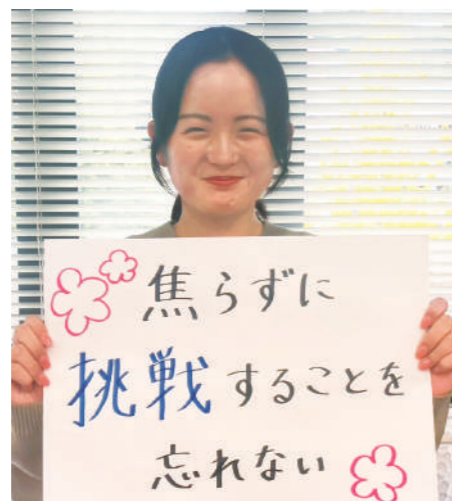 焦らずに
挑戦することを
忘れない